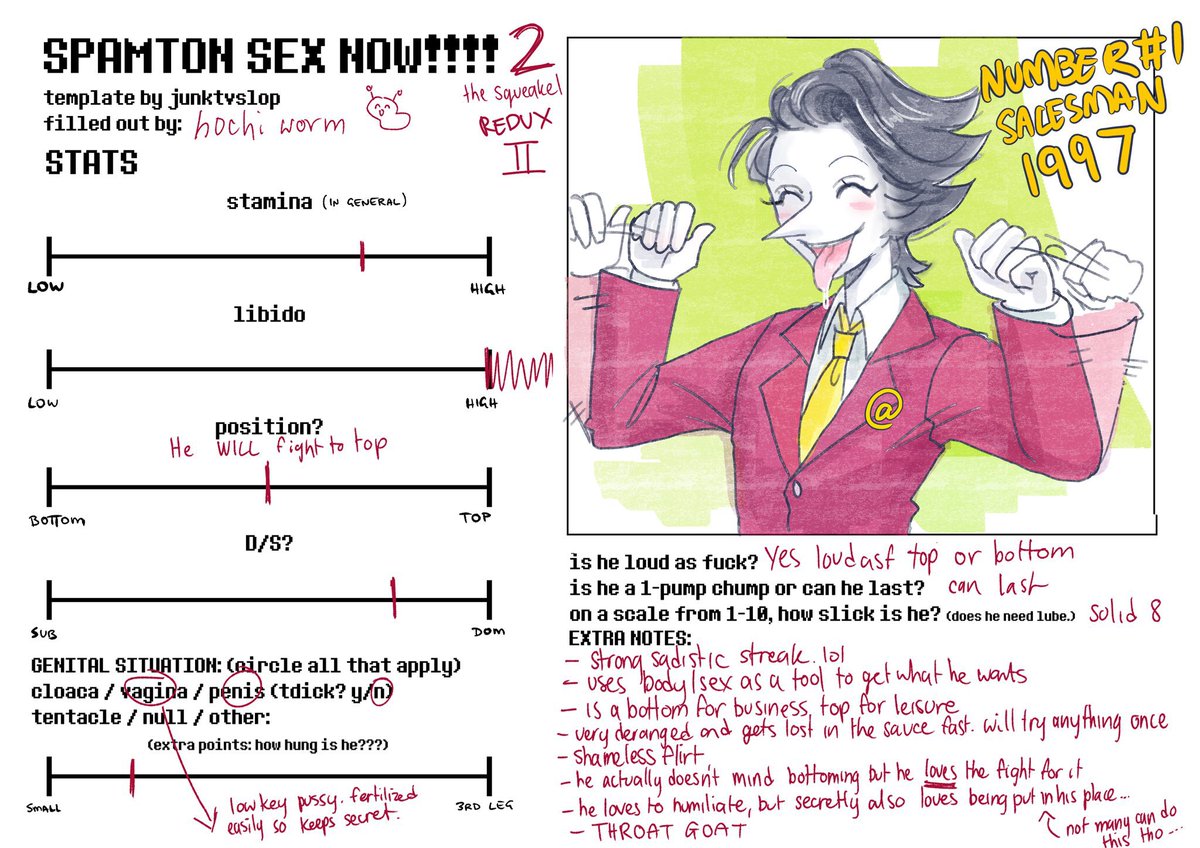 SPAMTON SEX NOW!!!! 2
the squeakel
REDUX
II
template by junktvslop
filled out by: hochi worm
STATS
stamina (IN GENERAL)
LOW HIGH
libido
LOW HIGH
position?
He WILL fight to top
BOTTOM TOP
D/S?
SUB DOM
GENITAL SITUATION: (circle all that apply)
cloaca / vagina / penis (tdick? y/n)
tentacle / null / other:
(extra points: how hung is he???)
SMALL 3RD LEG
lowkey pussy. fertilized
easily so keeps secret.
NUMBER #1
SALESMAN
1997
@
is he loud as fuck? Yes loud asf top or bottom
is he a 1-pump chump or can he last? can last
on a scale from 1-10, how slick is he? (does he need lube.) solid 8
EXTRA NOTES:
- strong sadistic streak. lol
- uses body/sex as a tool to get what he wants
- is a bottom for business, top for leisure
- very deranged and gets lost in the sauce fast. will try anything once
- shameless flirt.
- he actually doesn't mind bottoming but he loves the fight for it
- he loves to humiliate, but secretly also loves being put in his place...
- THROAT GOAT
not many can do
this tho...